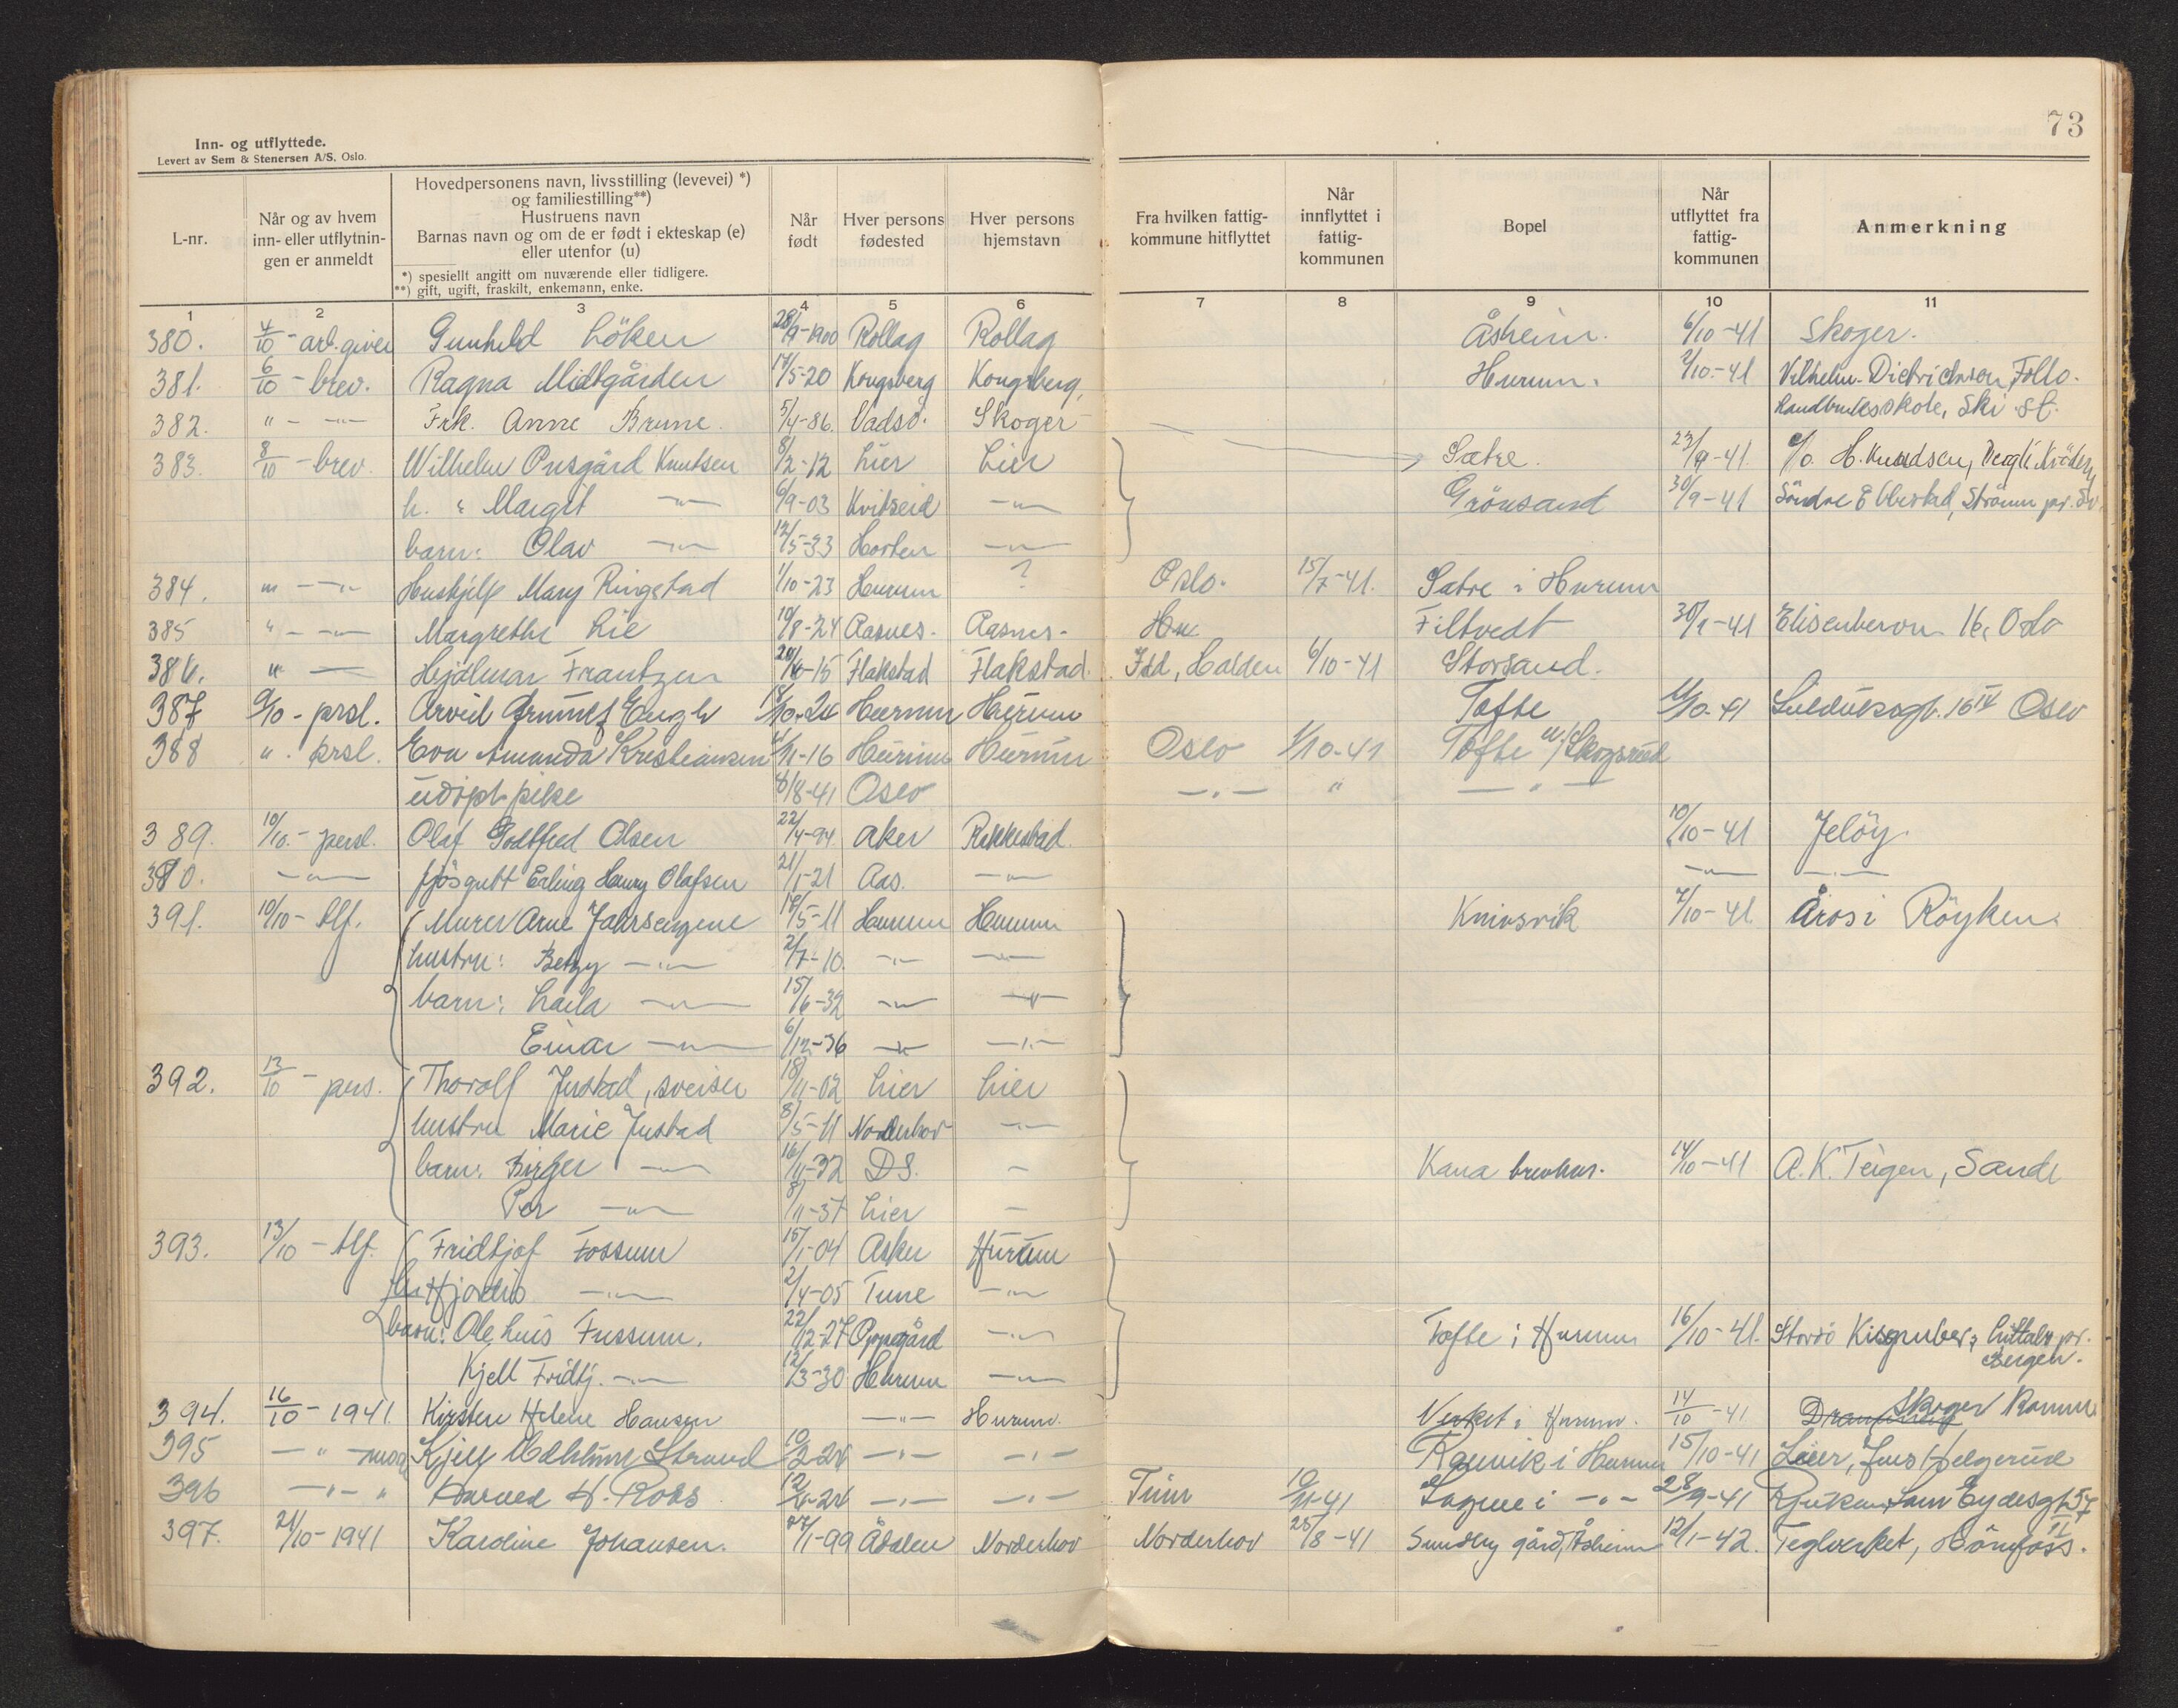 73
Inn- og utflyttede.
Levert av Sem & Stenersen A/S, Oslo.
L-nr.
Når og av hvem inn- eller utflytnin- gen er anmeldt
Hovedpersonens navn, livsstilling (levevei) *)
og familiestilling**)
Hustruens navn
Barnas navn og om de er født i ekteskap (e)
eller utenfor (u)
*) spesiellt angitt om nuværende eller tidligere.
**) gift, ugift, fraskilt, enkemann, enke.
Når født
Hver persons fødested
Hver persons hjemstavn
Fra hvilken fattig- kommune hitflyttet
Når innflyttet i fattig- kommunen
Bopel
Når utflyttet fra fattig- kommunen
Anmerkning
1 2 3 4 5 6 7 8 9 10 11
380. 4/10 - arb.giver Gunhild Löken 28/9-1900 Rollag Rollag Åsheim. 6/10-41 Skoger.
381. 6/10 - brev. Ragna Midtgården 17/5-20 Kongsberg Kongsberg, Hurum. 2/10-41 Vilhelm Dietrichson, Follo.
Landbruksskole, Ski st.
382. " - " - Frk. Anne Brune. 5/4-86. Vadsö. Skoger
383. 8/10 - brev. Wilhelm Knutsen 8/2-12 Lier Lier Sætre. 23/9-41 c/o. H. Knudsen,
h. " Margit - " - 6/9-03 Kvitseid - " - Grönsand 30/9-41 Söndre Ebbestad, Strömm pr.
barn: Olav - " - 12/5-33 Horten - " -
384. " - " - Hushjelp Mary Ringstad 1/10-23 Hurum ? Oslo. 15/7-41. Sætre i Hurum
385 " - " - Margrethe Lie 19/8-24 Aasnes. Aasnes. Hu Filtvedt 30/9-41 16, Oslo
386. " - Hjalmar Frantzen 20/6-15 Flakstad Flakstad. Idd, Halden 6/10-41 Storsand.
387 9/10 - prsl. Arvid Engh 18/10-24 Hurum Hurum Tofte 11/10-41 16 IV Oslo
388 " - prsl. Eva Amanda Kristiansen 4/11-16 Hurum Hurum Oslo 1/10-41 Tofte u/Skogsrud
udöpt pike 4/8-41 Oslo - " - " - " -
389. 10/10. - persl. Olaf Godtfred Olsen 22/4-94. Aker Rakkestad. 10/10-41 Jelöy.
390. - " - fjösgutt Erling Henry Olafsen 21/1-21 Aas. - " - - " - - " -
391. 10/10 - tlf. Murer Arne Jahrsengene 17/5-11 Hurum Hurum Knivsvik 7/10-41 Åros i Röyken
hustru: Betzy - " - 2/7-10. - " - - " -
barn: Laila - " - 15/6-32 - " - - " -
Einar - " - 6/12-36 - " - - " -
392. 13/10 - pers. Thorolf Justad, sveiser 18/11-02 Lier Lier
hustru Marie Justad 8/5-11 Norderhov - " -
barn: Birger - " - 16/11-32 DS. - Kana 14/10-41 A. K. Teigen, Sande
Per - " - 8/11-37 Lier -
393. 13/10 - tlf. Fridtjof Fossum 15/1-04 Asker Hurum
Hjordis - " - 2/4-05 Tune - " -
barn: Ole Luis Fossum. 22/12-27 Oppegård - " - Tofte i Hurum 16/10-41. Stordö Kisgruber, Litlabø pr.
Bergen.
Kjell Fridtj. - " - 12/3-30 Hurum - " -
394. 16/10 - 1941 Kirsten Helene Hansen - " - Hurum. Verket i Hurum. 14/10-41 Skoger
395 - " - Kjell Strand 10/2-24 - " - - " - Ramvik i Hurum 15/10-41 Lier, Jens Helgerud
396 - " - " H. Ross 12/ -24 - " - - " - Tinn 10/ -41 i - " - 28/9-41 Rjukan, Sam Eydesgt 57
II
397. 21/10 - 1941 Karoline Johansen. 27/1-99 Ådalen Norderhov Norderhov 25/8-41 Sundby gård, Åsheim 12/1-42. Teglverket, Hönefoss.